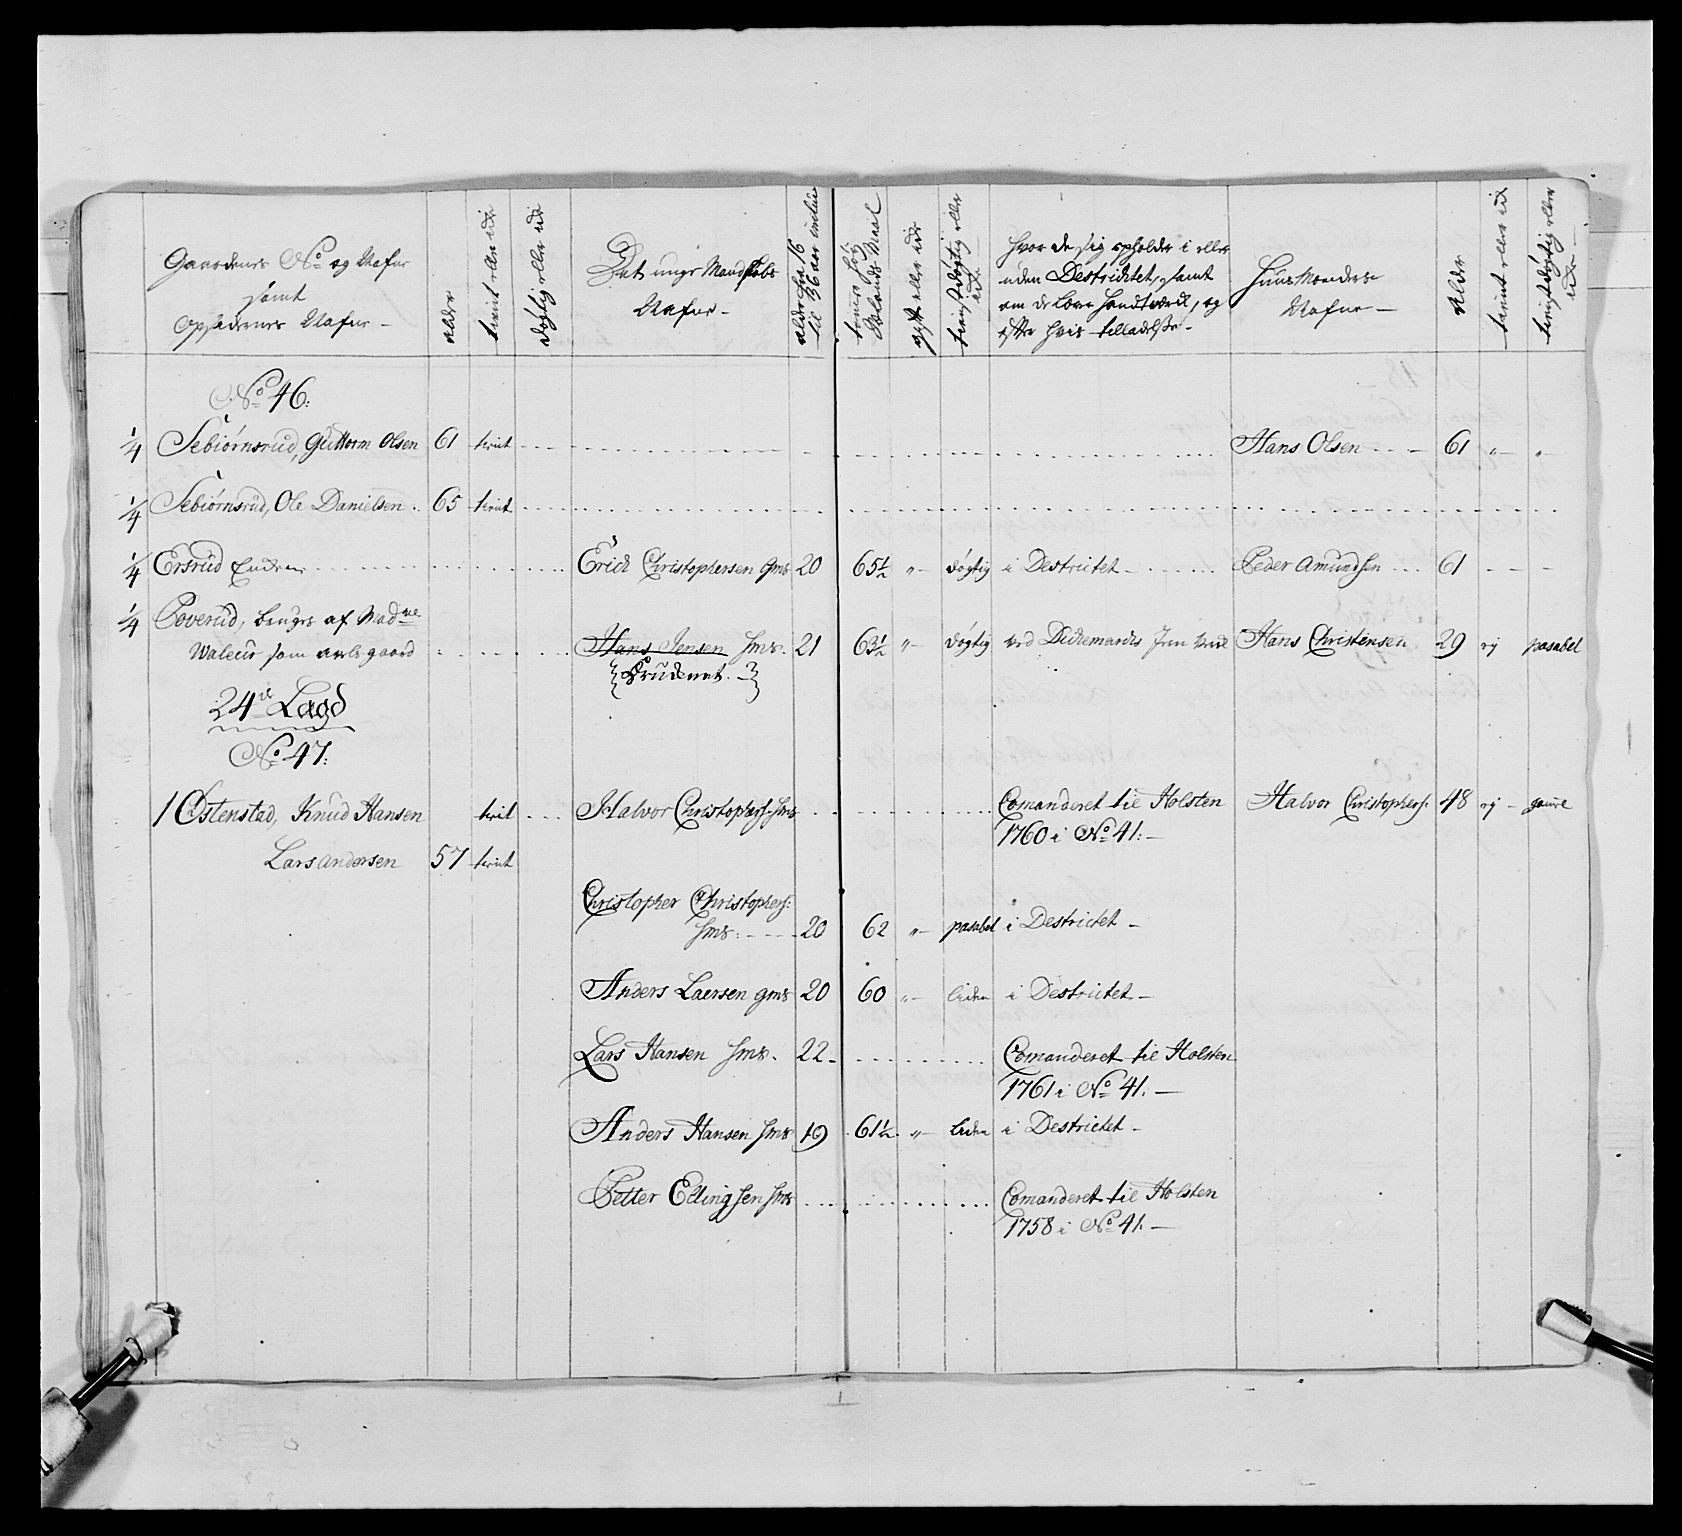 Gaardenes No og Nafne
samt
Opsidernes Nafne -
alder
tient eller ei
døgtig eller ei
Det unge Mandskabs
Nafne -
alder fra 16
til 36 aar inclus
tomers høy
Selands Maal
gift eller ei
tienst døgtig eller
ei
hvor de sig opholder i eller
uden Destrichtet, samt
om de lærer Handtværck, og
efter hvis tilladelse -
Huus Mændenes
Nafne -
Alder
tient eller ei
tienstdøgtig eller
ei
No 46:
1/4 Sebiørnsrud, Guttorm Olsen 61 tient Hans Olsen 61 " "
1/4 Sebiørnsrud, Ole Danielsen 65 tient
1/4 Ersrud Erich Christophersen gms 20 65½ " døgtig i Destrictet Peder Amundsen 61
1/4 Poverud, bruges af Madme
som avelsgaard Hans Jensen hms 21 63½ " døgtig ved Hans Christensen 29 ey pasabel
24de Lægd
No 47:
1 Østenstad, Knud Hansen tient Halvor Christophers: hms Comanderet til Holsten Halvor Christophers: 48 ey - gaml
1760 i No 41: -
Lars Andersen 57 tient
Christopher Christophers:
hms: 20 62 " pasabel i Destrictet -
Anders Laersen gms 20 60 " liden i Destrictet -
Lars Hansen hms. 22 Comanderet til Holsten
1761 i No 41. -
Anders Hansen hms 19 61½ " liden i Destrictet -
Petter Ellingsen hms Comanderet til Holsten
1758 i No 41. -